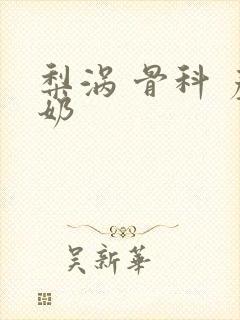 梨涡 骨科
奶
吴新华